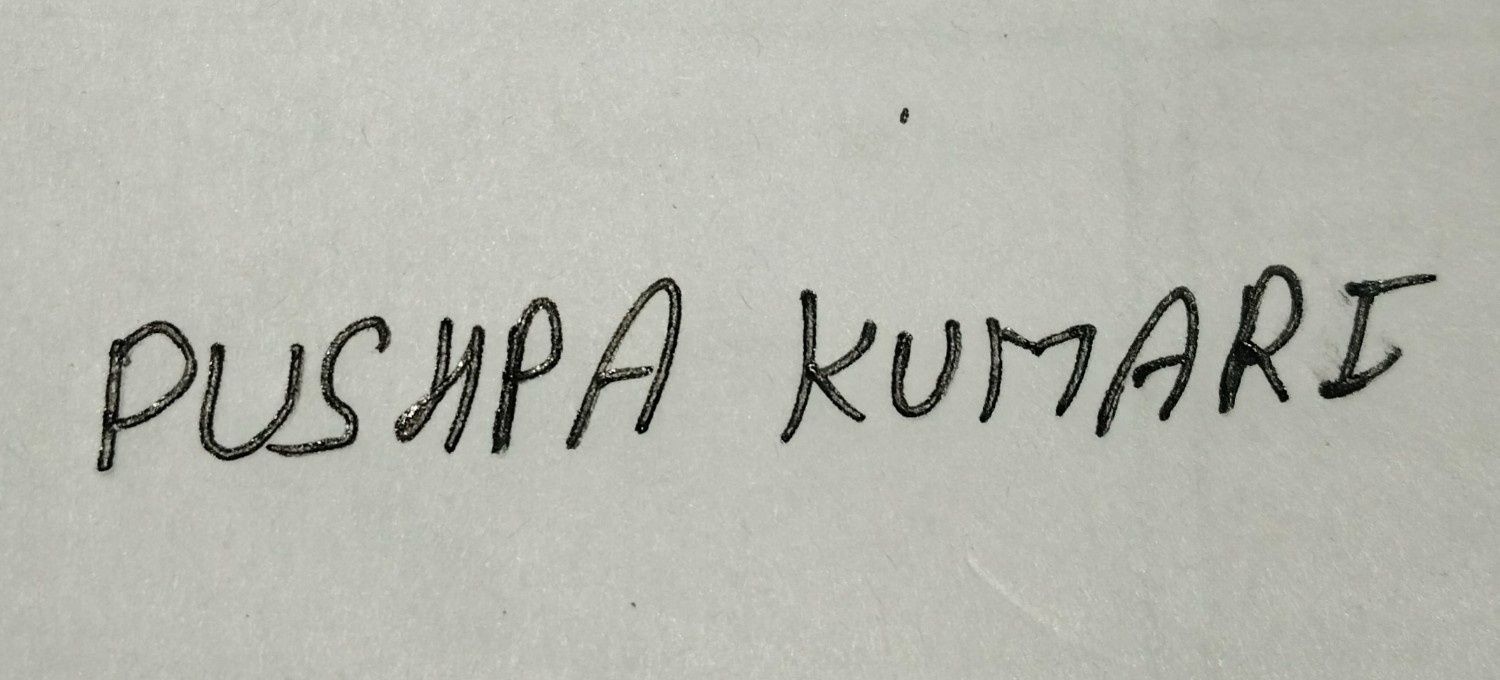 PUSHPA KUMARI